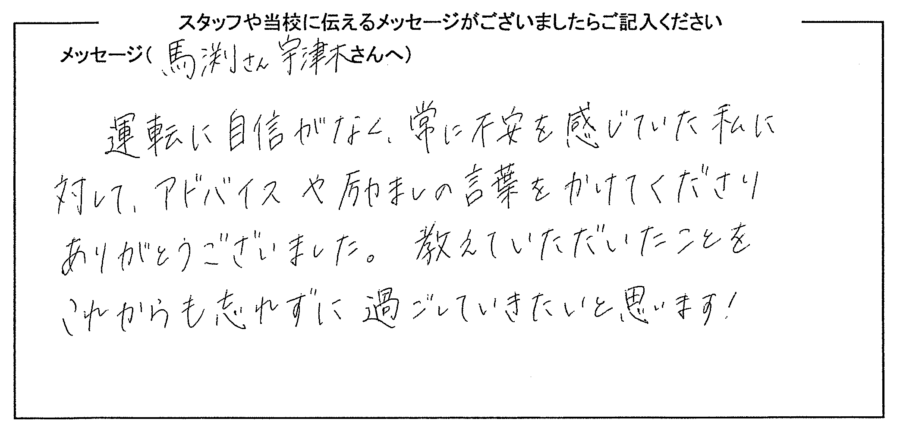 スタッフや当校に伝えるメッセージがございましたらご記入ください
メッセージ( 馬渕さん 宇津木さんへ)
運転に自信がなく、常に不安を感じていた私に
対して、アドバイスや励ましの言葉をかけてくださり
ありがとうございました。教えていただいたことを
これからも忘れずに過ごしていきたいと思います!